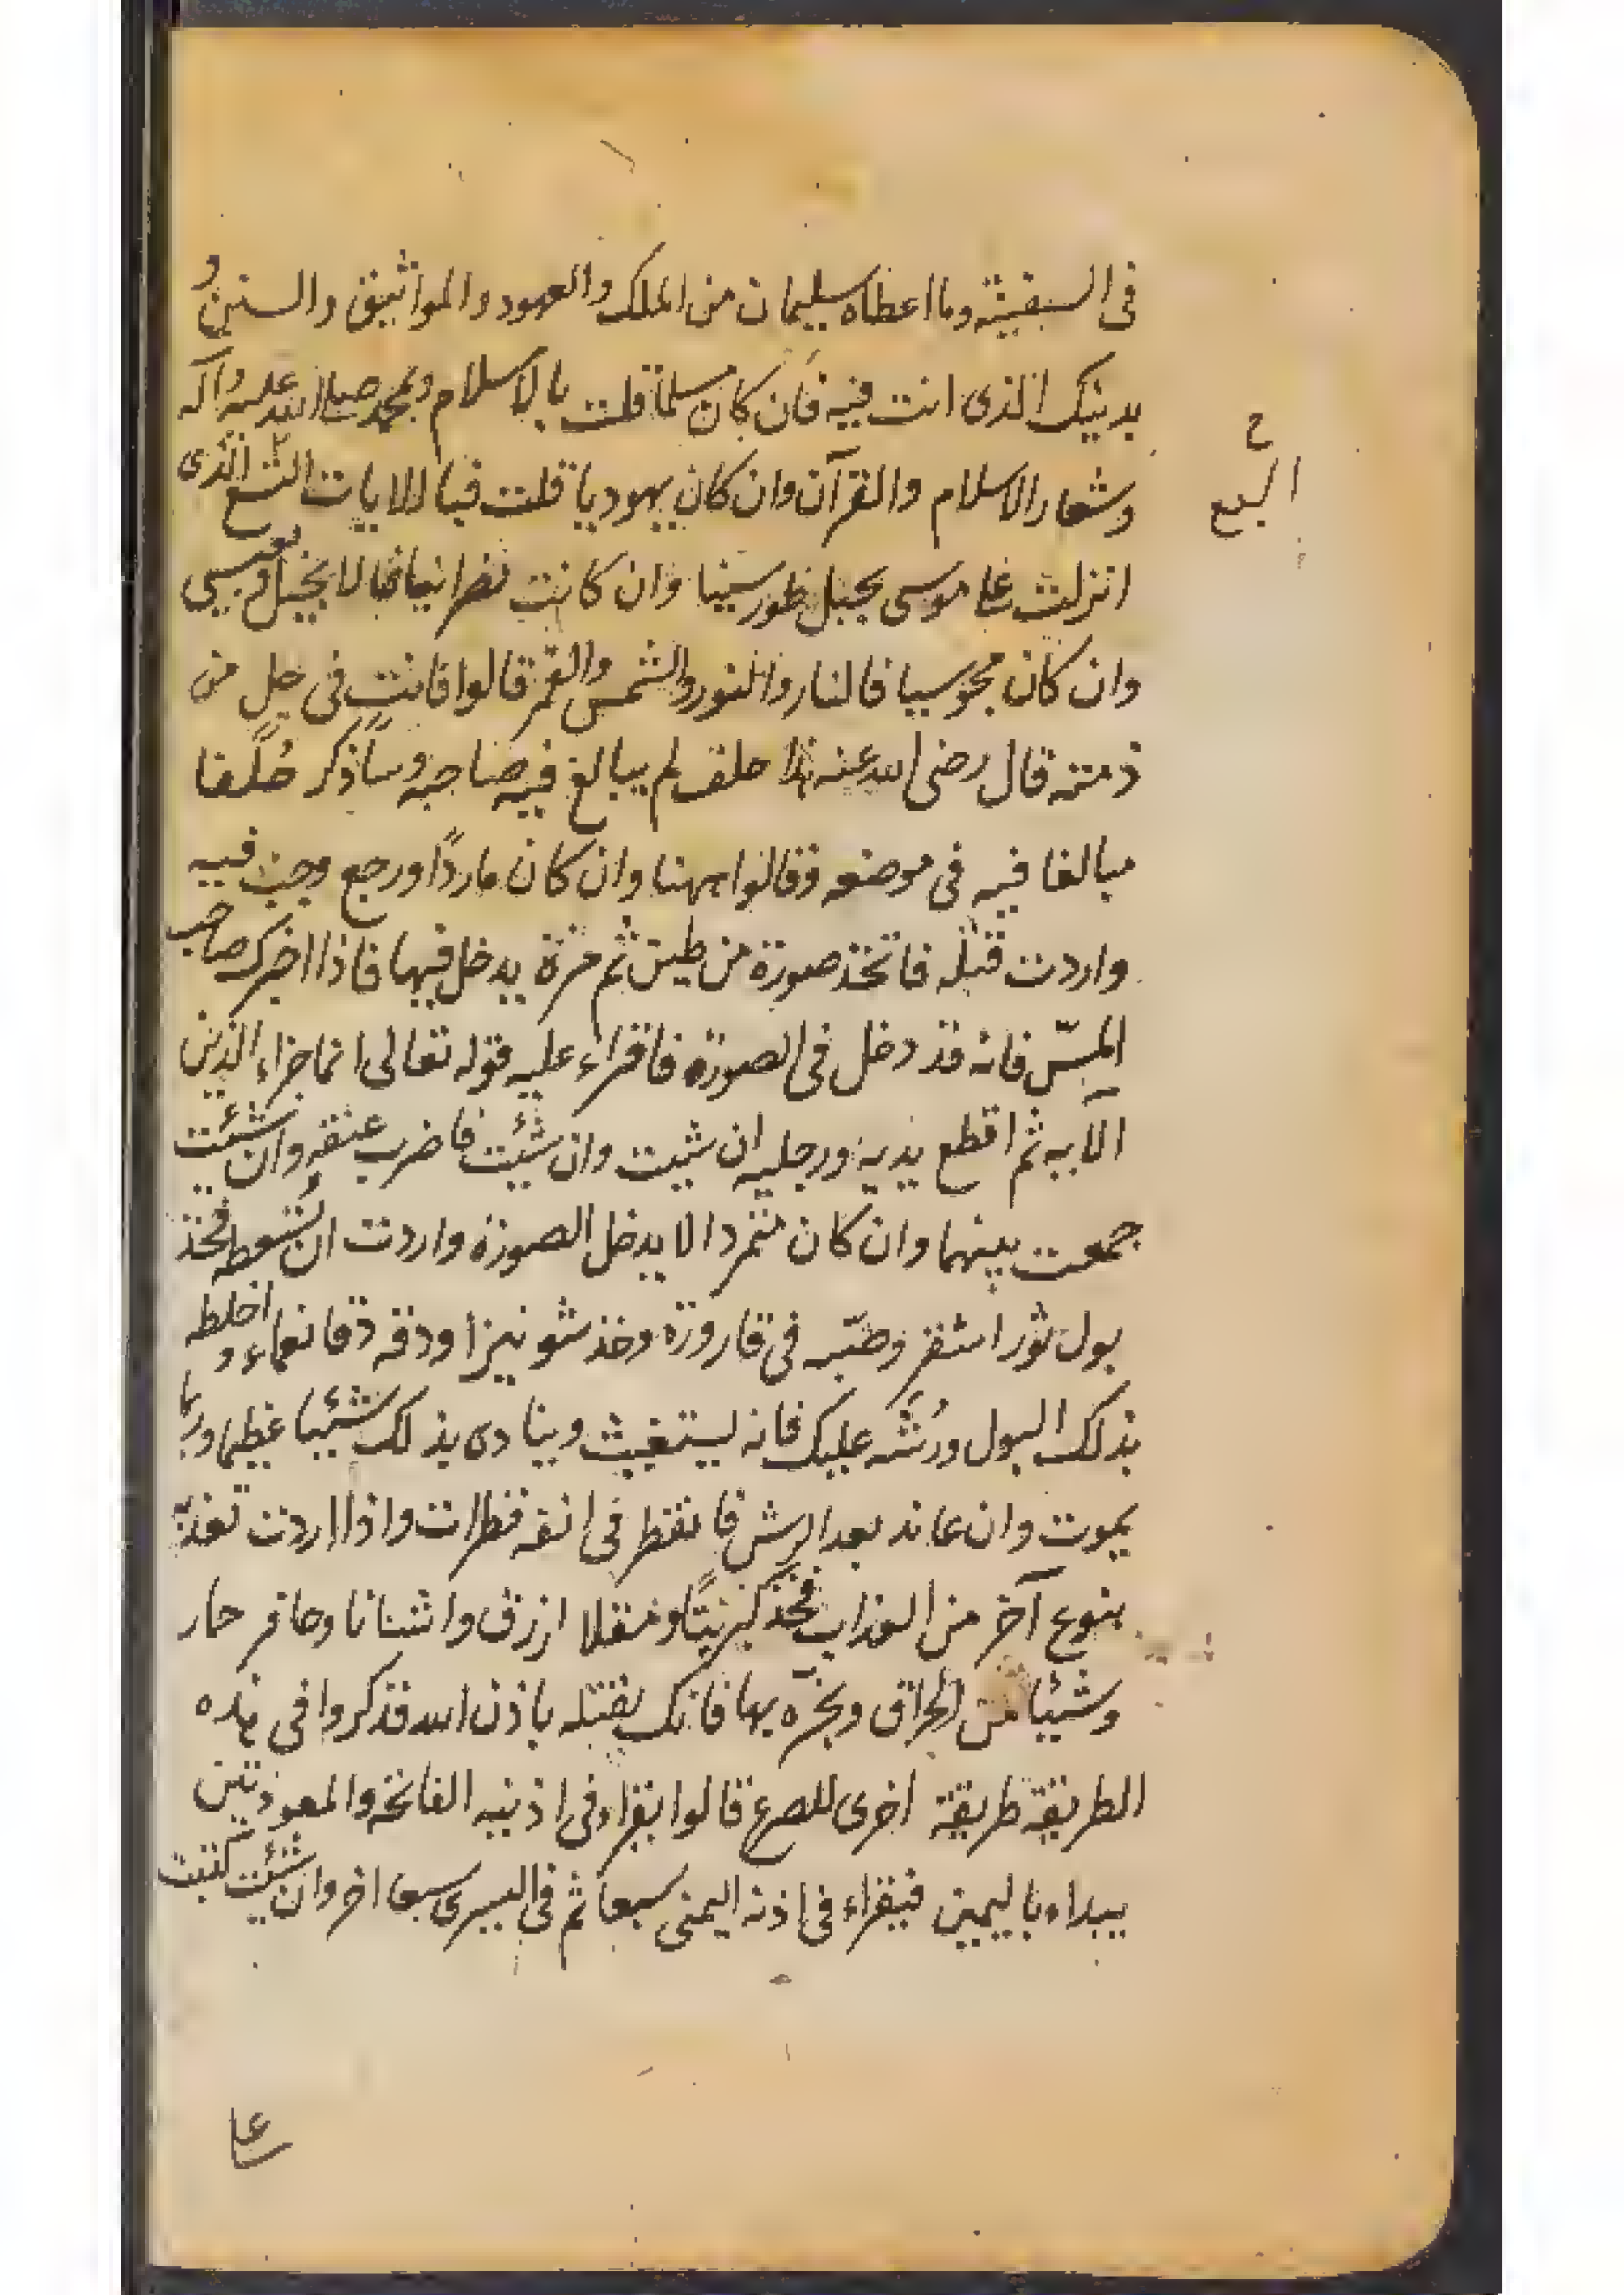 فى السفينة وما اعطاه سليمان من الملك والعهود والمواثيق والسنن و
بدينك الذى انت فيه فان كان مسلما قلت بالاسلام وبمحمد صلى الله عليه وآله
وشعار الاسلام والقرآن وان كان يهوديا قلت فبا الايات التسع الذى
التسع
انزلت على موسى بجبل طور سينا وان كانت نصرانيا فبالانجيل وبعيسى
وان كان مجوسيا فالنار والنور والشمس والقمر قالوا فانت فى حل من
ذمته قال رضى الله عنه هذا حلف لم يبالغ فيه صاحبه وساذكر حلفا
مبالغا فيه فى موضعه وقالوا ههنا وان كان ماردًا ورجع وجب فيه
واردت قتله فاتخذ صورة من طين ثم مره يدخل فيها فاذا اخبرك صاحب
المسّ فانه قد دخل فى الصورة فاقراء عليه قوله تعالى انما جزاء الذين
الآيه ثم اقطع يديه ورجليه ان شيت وان شئت فاضرب عنقه وان شئت
جمعت بينهما وان كان متمردا لا يدخل الصورة واردت ان تسعطه فخذ
بول ثور اشقر وصيّره فى قارورة وخذ شونيزا ودقه دقا نعماء واخلطه
بذلك البول ورُشَّه عليك فانه يستغيث وينادى بذلك شيئا عظيما وربما
يموت وان عاند بعد الرش فانقط فى انفه قطرات واذا اردت تعذبه
بنوع آخر من العذاب فخذ كبريتًا ومقلا ازرق واشنانا وحافر حمار
وشيئا من الحراق وبخّره بها فانك تقتله باذن الله فذكروا فى هذه
الطريقة طريقة اخرى للصرع قالوا يقراء فى اذنيه الفاتحة والمعوذتين
يبداء باليمين فيقراء فى اذنه اليمنى سبعا ثم فى اليسرى سبعا اخر وان شئت كتبت
على